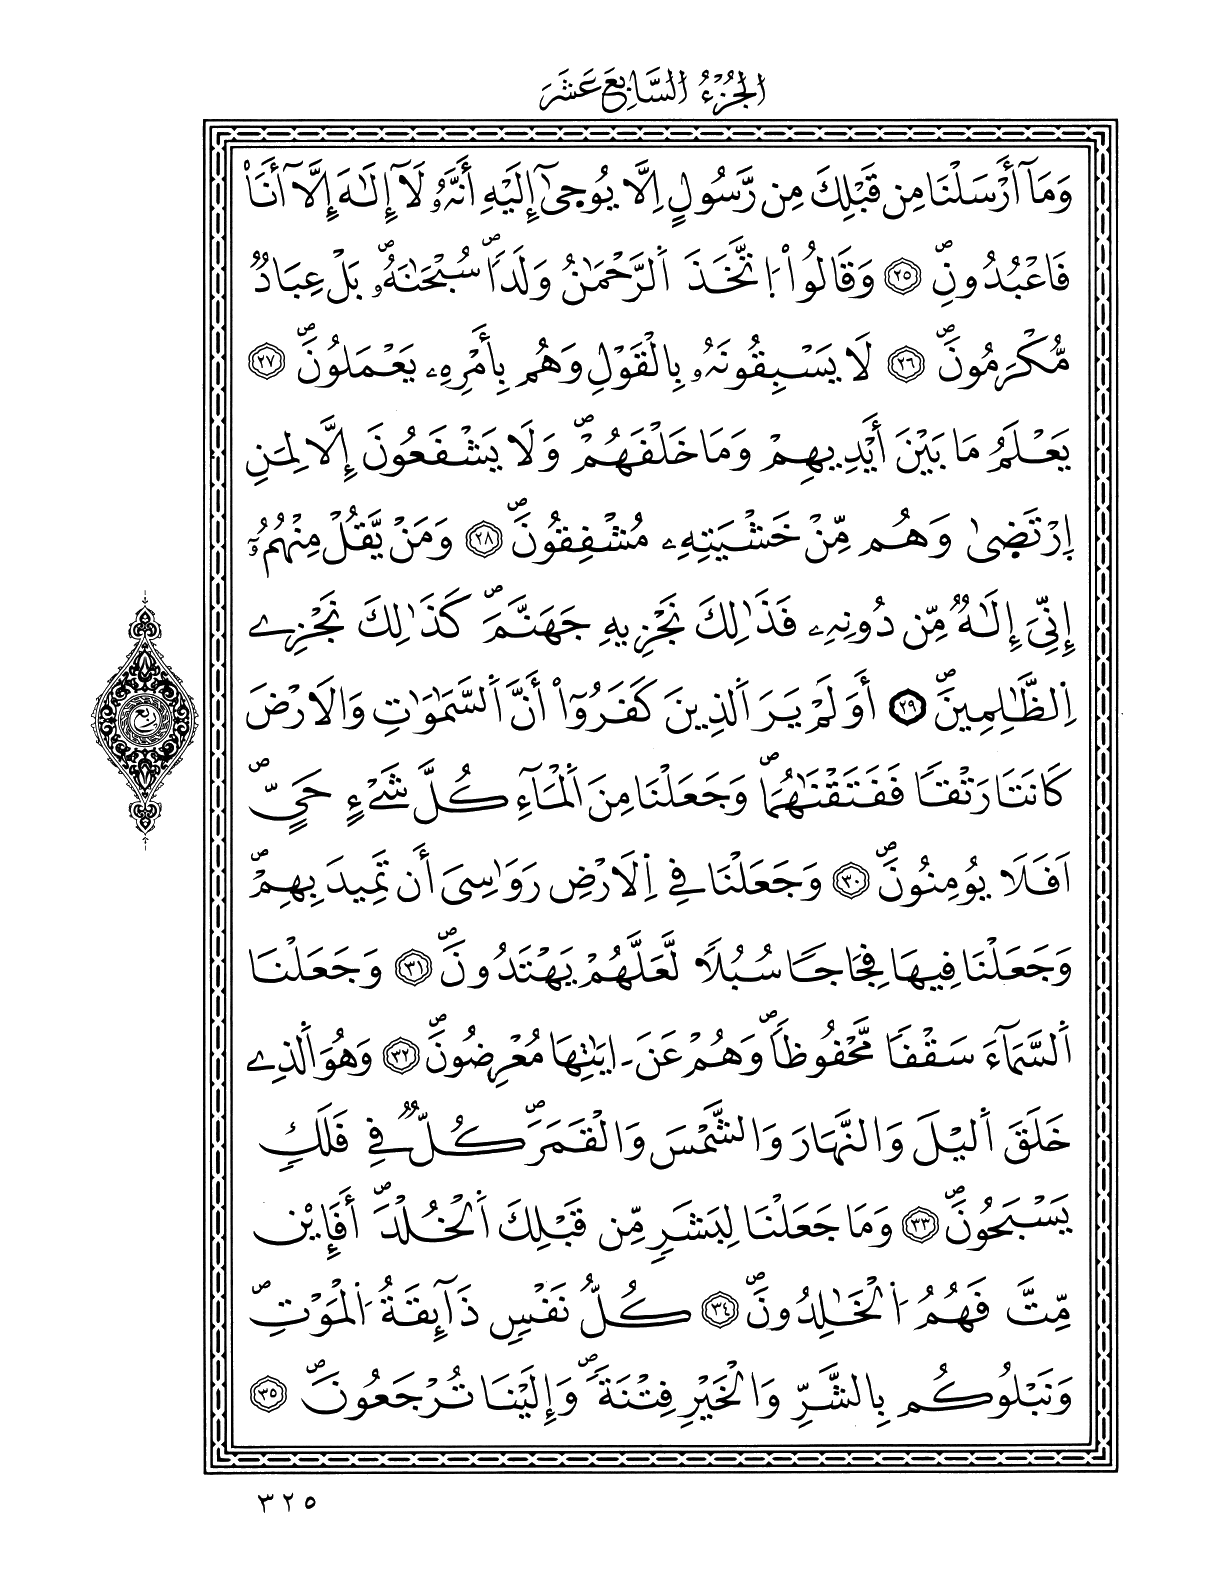 الجُزْءُ السَّابِعَ عَشَرَ
وَمَآ أَرْسَلْنَا مِن قَبْلِكَ مِن رَّسُولٍ اِلَّا يُوحَىٰٓ إِلَيْهِ أَنَّهُۥ لَآ إِلَٰهَ إِلَّآ أَنَا۠
فَاعْبُدُونِۖ ٢٥ وَقَالُواْ اُ۪تَّخَذَ اَ۬لرَّحْمَٰنُ وَلَداٗۖ سُبْحَٰنَهُۥۖ بَلْ عِبَادٞ
مُّكْرَمُونَۖ ٢٦ لَا يَسْبِقُونَهُۥ بِالْقَوْلِ وَهُم بِأَمْرِهِۦ يَعْمَلُونَۖ ٢٧
يَعْلَمُ مَا بَيْنَ أَيْدِيهِمْ وَمَا خَلْفَهُمْۖ وَلَا يَشْفَعُونَ إِلَّا لِمَنِ
اِ۪رْتَضَىٰ وَهُم مِّنْ خَشْيَتِهِۦ مُشْفِقُونَۖ ٢٨ وَمَنْ يَّقُلْ مِنْهُمُۥٓ
إِنِّيَ إِلَٰهٞ مِّن دُونِهِۦ فَذَٰلِكَ نَجْزِيهِ جَهَنَّمَۖ كَذَٰلِكَ نَجْزِے
اِ۬لظَّٰلِمِينَۖ ٢٩ أَوَلَمْ يَرَ اَ۬لذِينَ كَفَرُوٓاْ أَنَّ اَ۬لسَّمَٰوَٰتِ وَالَارْضَ
كَانَتَا رَتْقاٗ فَفَتَقْنَٰهُمَاۖ وَجَعَلْنَا مِنَ اَ۬لْمَآءِ كُلَّ شَےْءٍ حَيٍّۖ
اَفَلَا يُومِنُونَۖ ٣٠ وَجَعَلْنَا فِے اِ۬لَارْضِ رَوَٰسِىَ أَن تَمِيدَ بِهِمْۖ
وَجَعَلْنَا فِيهَا فِجَاجاٗ سُبُلاٗ لَّعَلَّهُمْ يَهْتَدُونَۖ ٣١ وَجَعَلْنَا
اَ۬لسَّمَآءَ سَقْفاٗ مَّحْفُوظاٗۖ وَهُمْ عَنَ ـ اٰيَٰتِهَا مُعْرِضُونَۖ ٣٢ وَهُوَ اَ۬لذِے
خَلَقَ اَ۬ليْلَ وَالنَّهَارَ وَالشَّمْسَ وَالْقَمَرَۖ كُلّٞ فِے فَلَكٖ
يَسْبَحُونَۖ ٣٣ وَمَا جَعَلْنَا لِبَشَرٖ مِّن قَبْلِكَ اَ۬لْخُلْدَۖ أَفَإِيْن
مِّتَّ فَهُمُ اُ۬لْخَٰلِدُونَۖ ٣٤ كُلُّ نَفْسٖ ذَآئِقَةُ اُ۬لْمَوْتِۖ
وَنَبْلُوكُم بِالشَّرِّ وَالْخَيْرِ فِتْنَةٗۖ وَإِلَيْنَا تُرْجَعُونَۖ ٣٥
ربع
٣٢٥